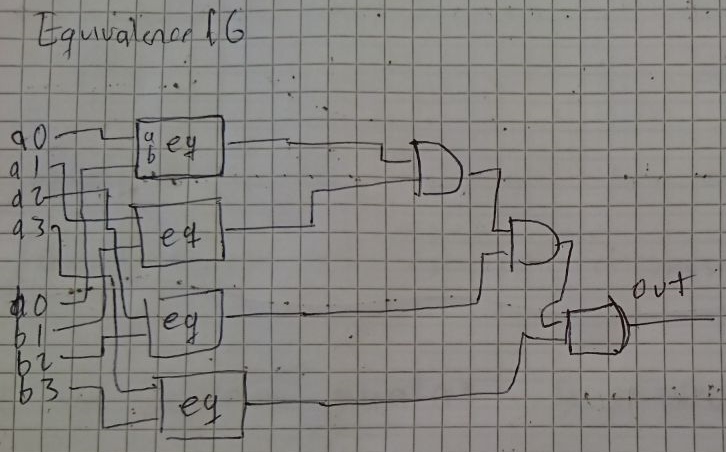 Equivalence 16
a0
a1
a2
a3
b0
b1
b2
b3
a
b
eq
eq
eq
eq
out